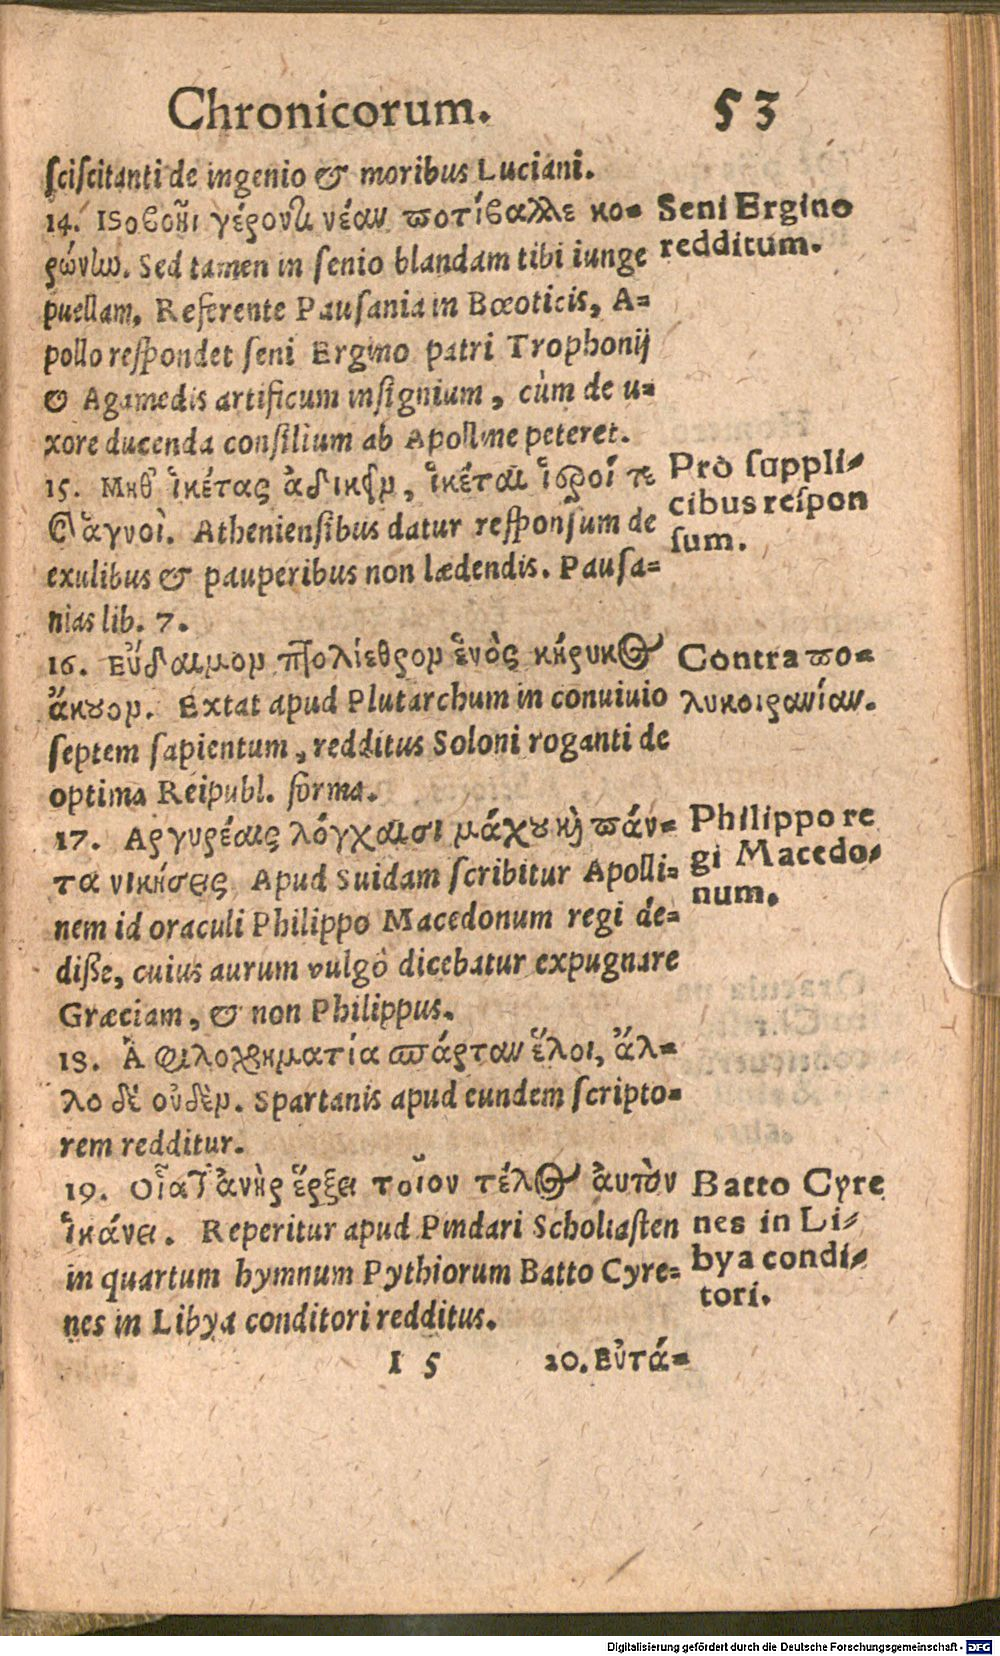 Chronicorum. 53
sciscitanti de ingenio & moribus Luciani.
14. Ιςοβοῆι γέροντι νέαν ποτίβαλλε κο-
ρώνην. Sed tamen in senio blandam tibi iunge
puellam. Referente Pausania in Bœoticis, A-
pollo respondet seni Ergino patri Trophonij
& Agamedis artificum insignium, cùm de u-
xore ducenda consilium ab Apolline peteret.
Seni Ergino
redditum.
15. Μηθ᾽ ἱκέτας ἀδικεῖν, ἱκέται ἱεροί τε
καὶ ἁγνοὶ. Atheniensibus datur responsum de
exulibus & pauperibus non lædendis. Pausa-
nias lib. 7.
Prò suppli-
cibus respon
sum.
16. Εὔδαιμον πτολίεθρον ἑνὸς κήρυκος
ἄκουον. Extat apud Plutarchum in conuiuio
septem sapientum, redditus Soloni roganti de
optima Reipubl. forma.
Contra πο-
λυκοιρανίαν.
17. Αργυρέαις λόγχαισι μάχου καὶ πάν-
τα νικήσεις. Apud Suidam scribitur Apolli-
nem id oraculi Philippo Macedonum regi de-
disse, cuius aurum vulgò dicebatur expugnare
Græciam, & non Philippus.
Philippo re
gi Macedo-
num.
18. Ἁ φιλοχρηματία σπάρταν ἕλοι, ἄλ-
λο δὲ οὐδὲν. Spartanis apud eundem scripto-
rem redditur.
19. Οἷα τ᾽ ἀνὴρ ἔρξει τοῖον τέλος αὐτὸν
ἱκάνει. Reperitur apud Pindari Scholiasten
in quartum hymnum Pythiorum Batto Cyre-
nes in Libya conditori redditus.
Batto Cyre
nes in Li-
bya condi-
tori.
I 5 20. Εὐτά-
Digitalisierung gefördert durch die Deutsche Forschungsgemeinschaft - DFG